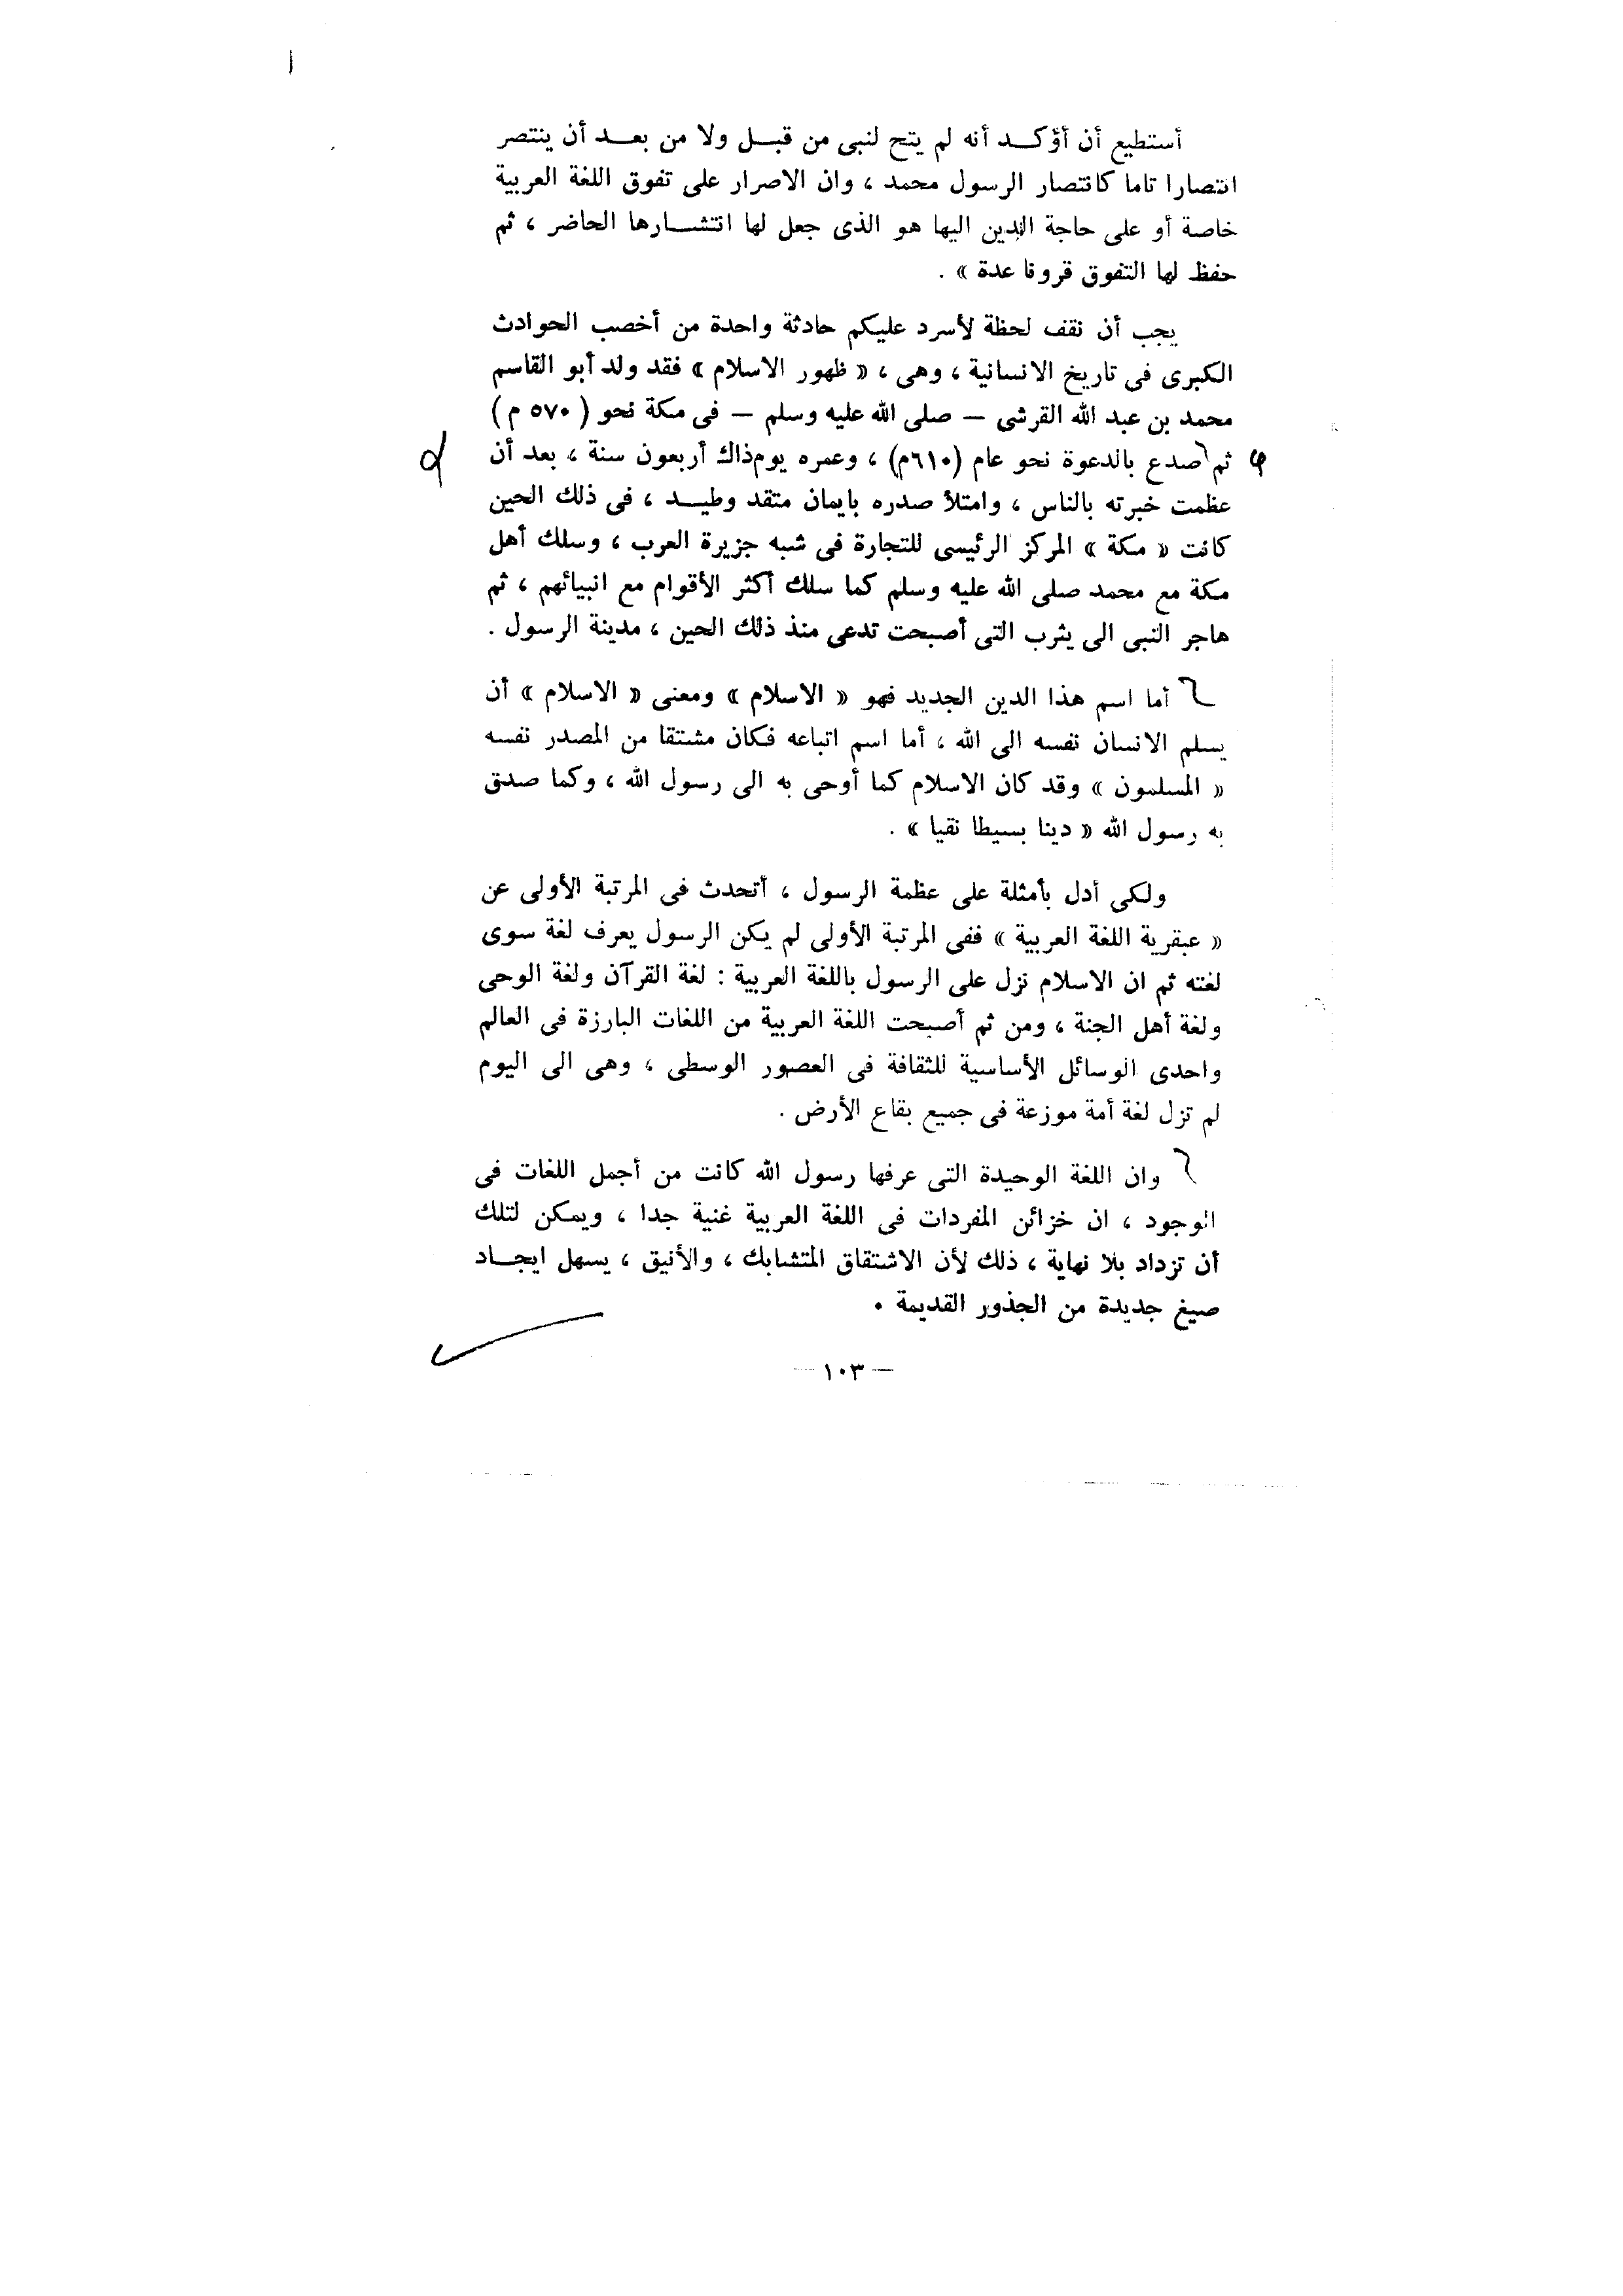 أستطيع أن أؤكد أنه لم يتح لنبى من قبل ولا من بعد أن ينتصر
انتصارا تاما كانتصار الرسول محمد ، وان الاصرار على تفوق اللغة العربية
خاصة أو على حاجة الدين اليها هو الذى جعل لها انتشارها الحاضر ، ثم
حفظ لها التفوق قرونا عدة » .
يجب أن نقف لحظة لأسرد عليكم حادثة واحدة من أخصب الحوادث
الكبرى فى تاريخ الانسانية ، وهى ، « ظهور الاسلام » فقد ولد أبو القاسم
محمد بن عبد الله القرشى — صلى الله عليه وسلم — فى مكة نحو ( ٥٧٠ م )
ثم صدع بالدعوة نحو عام (٦١٠م) ، وعمره يومذاك أربعون سنة ، بعد أن
عظمت خبرته بالناس ، وامتلأ صدره بايمان متقد وطيد ، فى ذلك الحين
كانت « مكة » المركز الرئيسى للتجارة فى شبه جزيرة العرب ، وسلك أهل
مكة مع محمد صلى الله عليه وسلم كما سلك أكثر الأقوام مع انبيائهم ، ثم
هاجر النبى الى يثرب التى أصبحت تدعى منذ ذلك الحين ، مدينة الرسول .
أما اسم هذا الدين الجديد فهو « الاسلام » ومعنى « الاسلام » أن
يسلم الانسان نفسه الى الله ، أما اسم اتباعه فكان مشتقا من المصدر نفسه
« المسلمون » وقد كان الاسلام كما أوحى به الى رسول الله ، وكما صدق
به رسول الله « دينا بسيطا نقيا » .
ولكى أدل بأمثلة على عظمة الرسول ، أتحدث فى المرتبة الأولى عن
« عبقرية اللغة العربية » ففى المرتبة الأولى لم يكن الرسول يعرف لغة سوى
لغته ثم ان الاسلام نزل على الرسول باللغة العربية : لغة القرآن ولغة الوحى
ولغة أهل الجنة ، ومن ثم أصبحت اللغة العربية من اللغات البارزة فى العالم
واحدى الوسائل الأساسية للثقافة فى العصور الوسطى ، وهى الى اليوم
لم تزل لغة أمة موزعة فى جميع بقاع الأرض .
وان اللغة الوحيدة التى عرفها رسول الله كانت من أجمل اللغات فى
الوجود ، ان خزائن المفردات فى اللغة العربية غنية جدا ، ويمكن لتلك
أن تزداد بلا نهاية ، ذلك لأن الاشتقاق المتشابك ، والأنيق ، يسهل ايجاد
صيغ جديدة من الجذور القديمة .
— ١٠٣ —